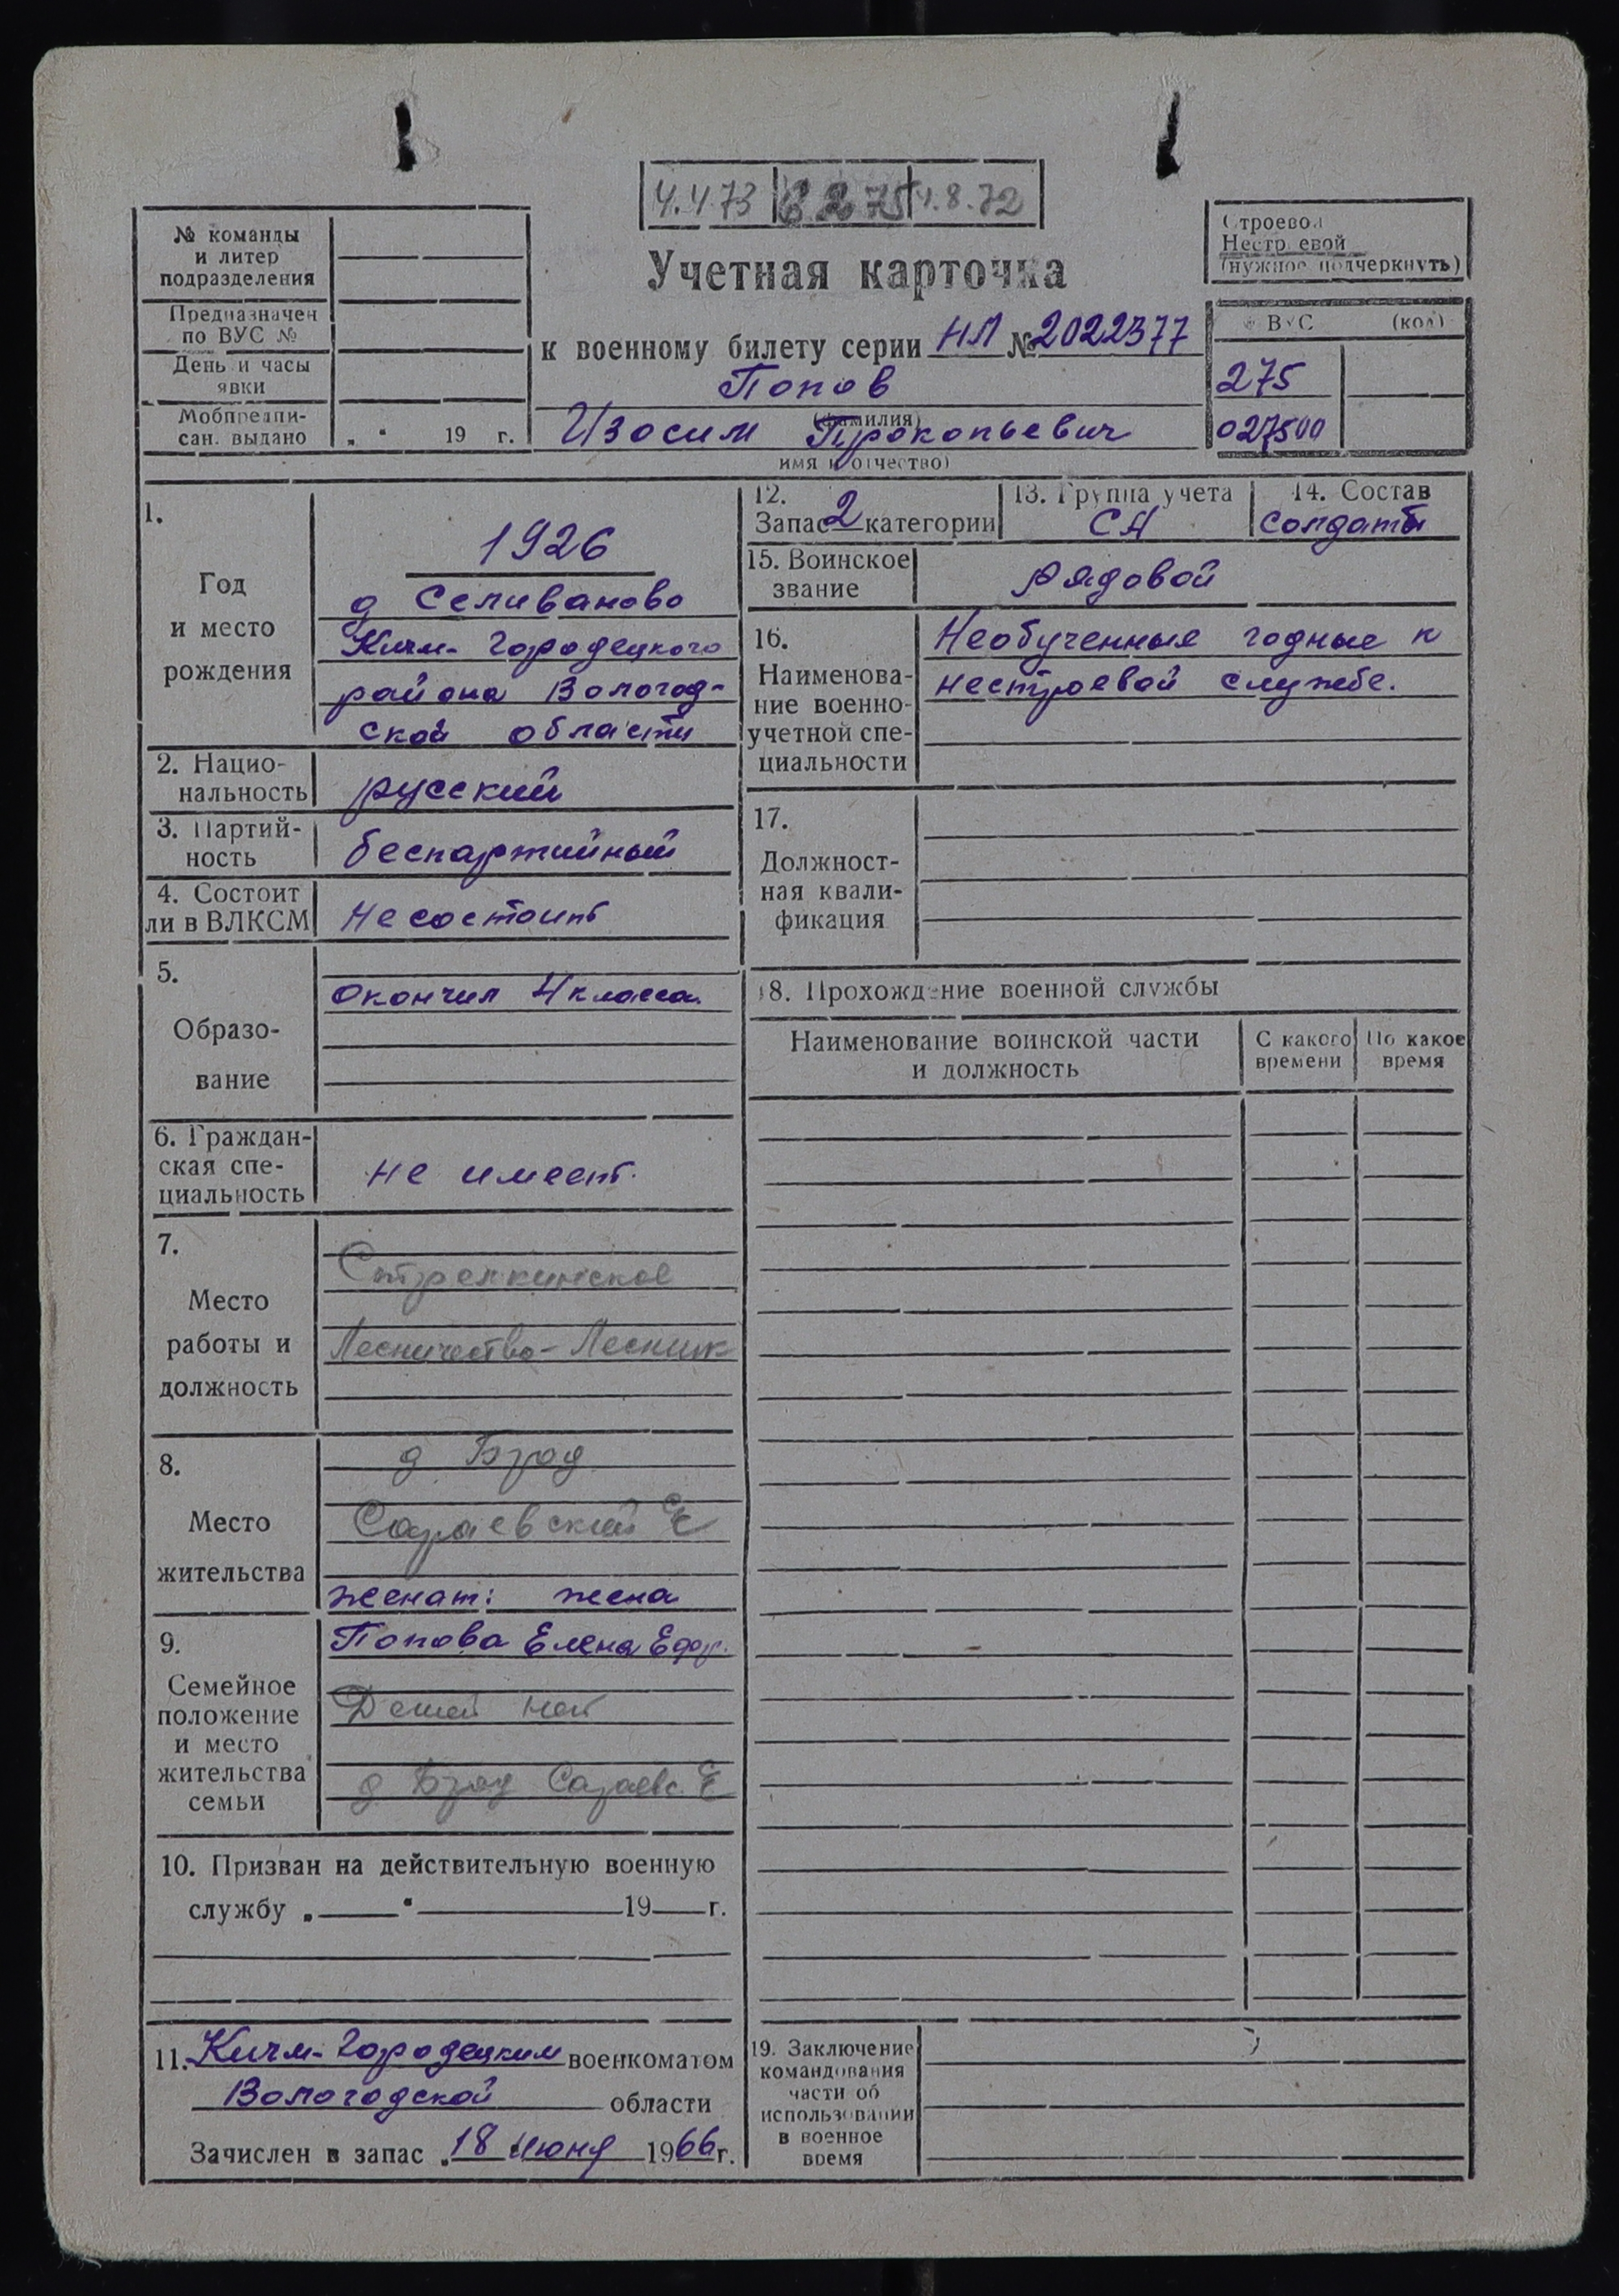 4.4.73 8.72
№ команды
и литер
подразделения
Предназначен
по ВУС №
День и часы
явки
Мобпредпи-
сан. выдано „ “ 19 г.
Учетная карточка
к военному билету серии НЛ № 2022377
Попов
(фамилия)
Изосим Прокопьевич
имя и отчество)
Строевой
Нестроевой
(нужное подчеркнуть)
ВУС (код)
275
027500
1.
Год
и место
рождения
1926
д Селиваново
Кичм-Городецкого
района Вологод-
ской области
2. Нацио-
нальность
русский
3. Партий-
ность
беспартийный
4. Состоит
ли в ВЛКСМ
Не состоит
5.
Образо-
вание
Окончил 4 класса.
6. Граждан-
ская спе-
циальность
не имеет.
7.
Место
работы и
должность
Стрелкинское
Лесничество - Лесник
8.
Место
жительства
Сараевский с/с
женат: жена
9.
Семейное
положение
и место
жительства
семьи
Попова Елена Ефр.
Детей нет
Сараевс. с/с
10. Призван на действительную военную
службу „ “ 19 г.
11. Кичм-Городецким военкоматом
Вологодской области
Зачислен в запас „18 июня 1966 г.
12.
Запас 2 категории
13. Группа учета
СА
14. Состав
солдаты
15. Воинское
звание
рядовой
16.
Наименова-
ние военно-
учетной спе-
циальности
Необученные годные к
нестроевой службе.
17.
Должност-
ная квали-
фикация
18. Прохождение военной службы
Наименование воинской части
и должность
С какого
времени
По какое
время
19. Заключение
командования
части об
использовании
в военное
время